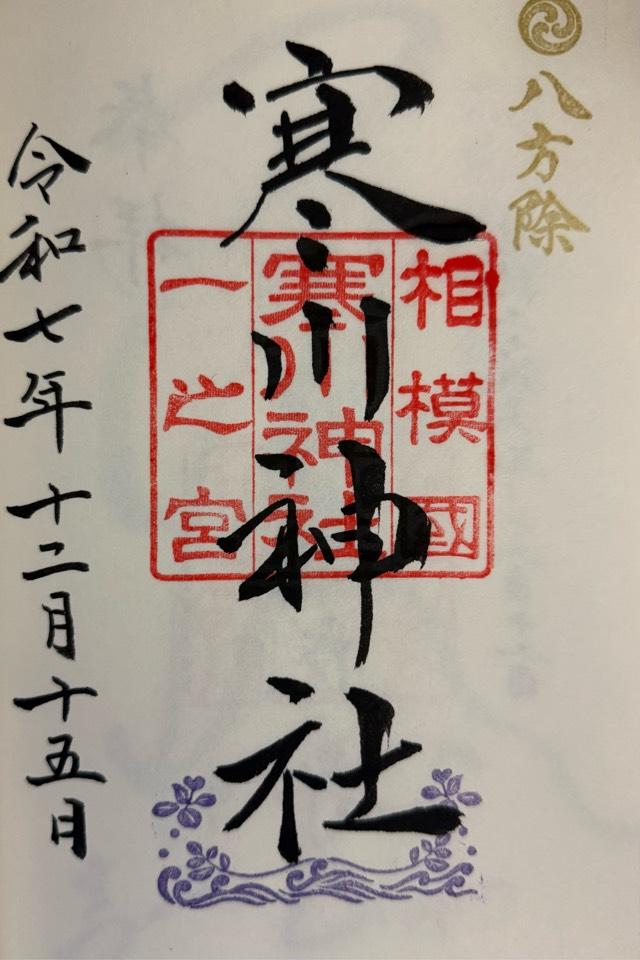 八方除
寒川神社
相模國
寒川神社
一之宮
令和七年十二月十五日